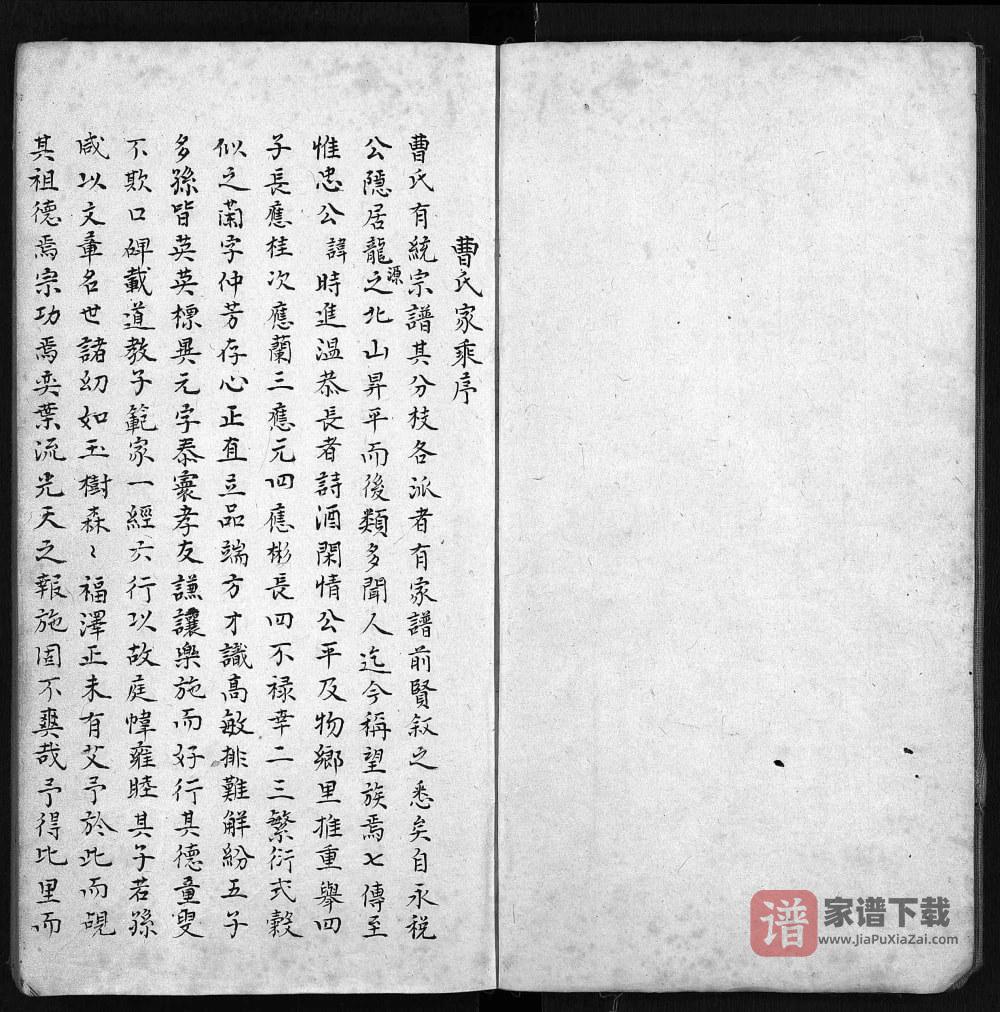 曹氏家乘序
曹氏有統宗譜其分枝各派者有家譜前賢叙之悉矣自永税
公隱居龍源之北山昇平而後類多聞人迄今稱望族焉七傳至
惟忠公諱時進溫恭長者詩酒閑情公平及物鄉里推重舉四
子長應桂次應蘭三應元四應彬長四不禄幸二三繁衍式穀
似之蘭字仲芳存心正直立品端方才識高敏排難解紛五子
多孫皆英英標異元字泰寰孝友謙讓樂施而好行其德童叟
不欺口碑載道教子範家一經六行以故庭幃雍睦其子若孫
咸以文章名世諸幼如玉樹森〻福澤正未有艾予於此而覘
其祖德焉宗功焉奕葉流光天之報施固不爽哉予得比里而
谱 家谱下载
www.JiaPuXiaZai.com